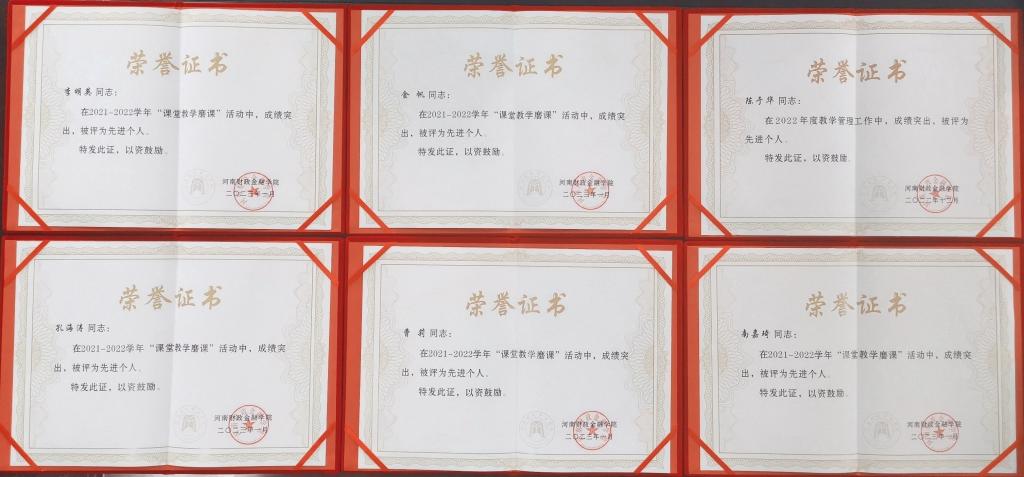 荣誉证书
李明英 同志：
在2021-2022学年“课堂教学磨课”活动中，成绩突
出，被评为先进个人。
特发此证，以资鼓励。
河南财政金融学院
二〇二三年一月
荣誉证书
金 帆 同志：
在2021-2022学年“课堂教学磨课”活动中，成绩突
出，被评为先进个人。
特发此证，以资鼓励。
河南财政金融学院
二〇二三年一月
荣誉证书
陈子华 同志：
在 2022 年度教学管理工作中，成绩突出，被评为
先进个人。
特发此证，以资鼓励。
河南财政金融学院
二〇二二年十二月
荣誉证书
孔海涛 同志：
在2021-2022学年“课堂教学磨课”活动中，成绩突
出，被评为先进个人。
特发此证，以资鼓励。
河南财政金融学院
二〇二三年一月
荣誉证书
曹 莉 同志：
在2021-2022学年“课堂教学磨课”活动中，成绩突
出，被评为先进个人。
特发此证，以资鼓励。
河南财政金融学院
二〇二三年一月
荣誉证书
南嘉琦 同志：
在2021-2022学年“课堂教学磨课”活动中，成绩突
出，被评为先进个人。
特发此证，以资鼓励。
河南财政金融学院
二〇二三年一月